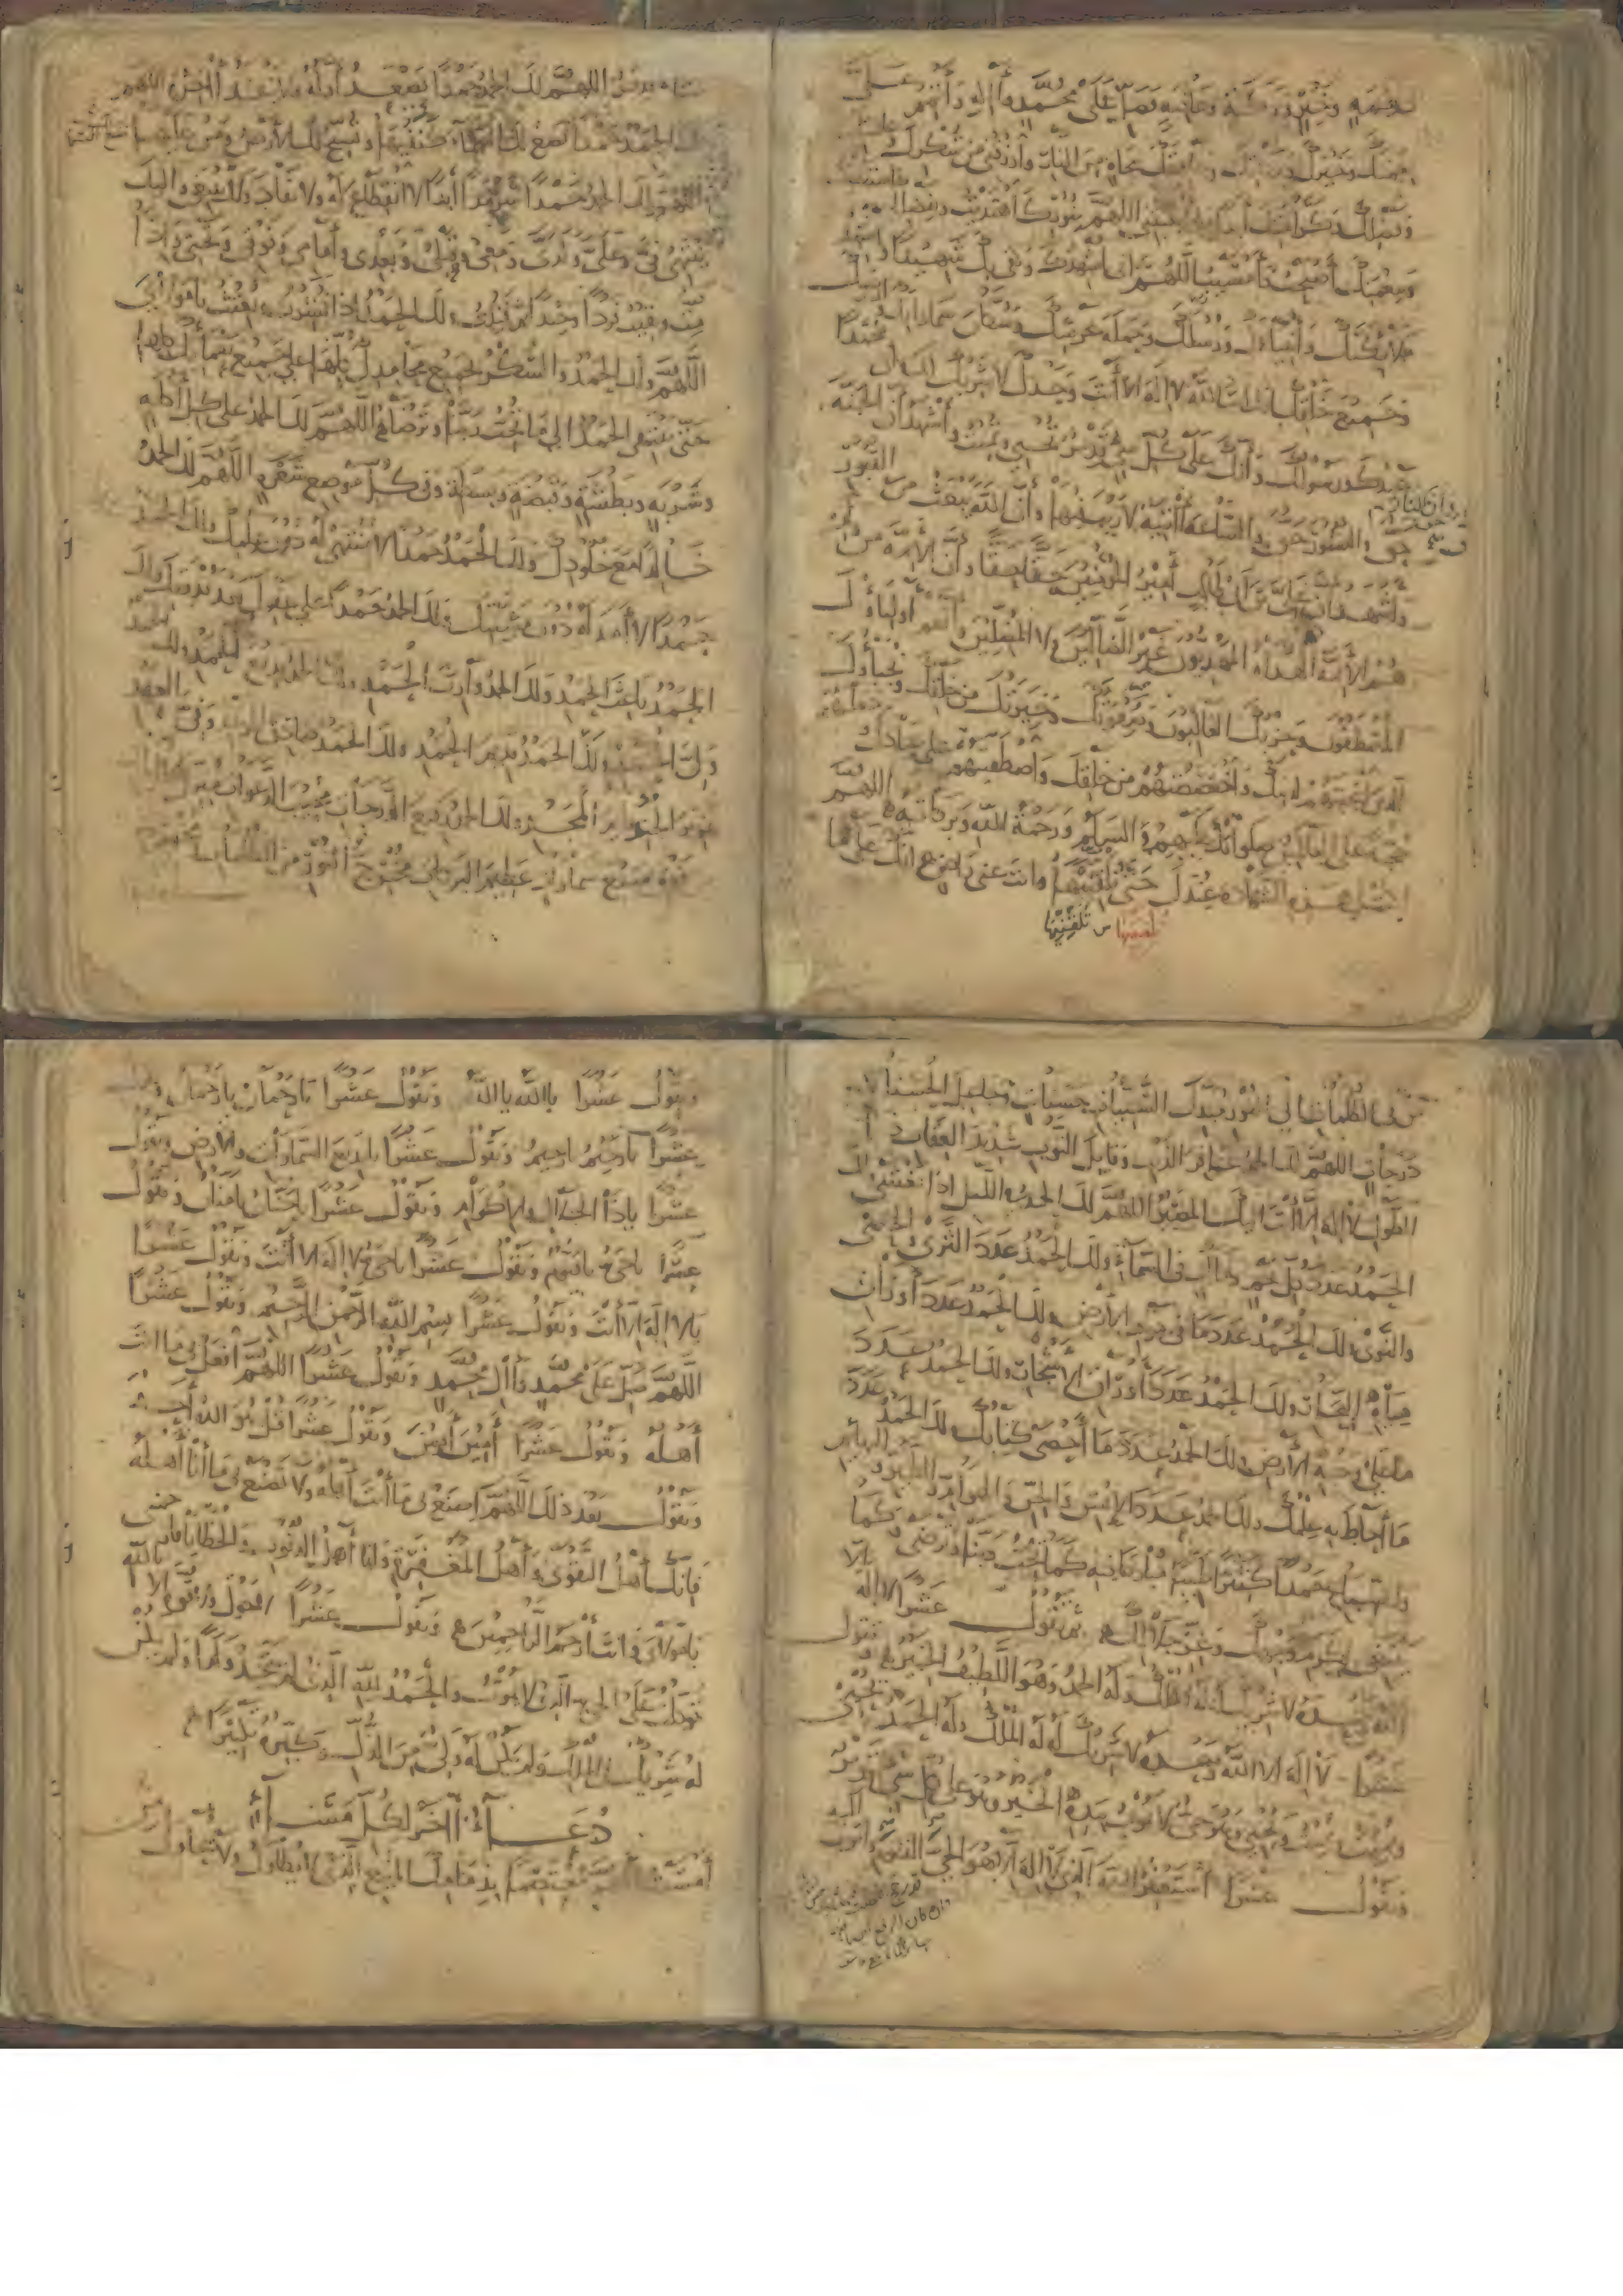 نعمة وخير وبركة وعافية فصل على محمد وآله وأتمم علي
نعمتك وخيرك وبركاتك وعافيتك بنجاة من النار وارزقني شكرك
وعافيتك وكرامتك أبدا ما أبقيتني اللهم بنورك اهتديت وبفضلك استغنيت
وبنعمتك أصبحت وأمسيت اللهم إني أشهدك وكفى بك شهيدا وأشهد
ملائكتك وأنبياءك ورسلك وحملة عرشك وسكان سماواتك وأرضك
وجميع خلقك بأنك أنت الله لا إله إلا أنت وحدك لا شريك لك وأن محمدا
عبدك ورسولك وأنك على كل شيء قدير تحيي وتميت وأشهد أن الجنة
وأن النار حق
حق والنشور حق والساعة آتية لا ريب فيها وأن الله يبعث من في القبور
وأشهد أن علي بن أبي طالب أمير المؤمنين حقا حقا وأن الأئمة من ولده
هم الأئمة الهداة المهديون غير الضالين ولا المضلين وأنهم أولياؤك
المصطفون وحزبك الغالبون وصفوتك وخيرتك من خلقك ونجباؤك
الذين انتجبتهم لدينك واختصصتهم من خلقك واصطفيتهم على عبادك وجعلتهم
حجة على العالمين صلواتك عليهم والسلام ورحمة الله وبركاته اللهم
اكتب لي هذه الشهادة عندك حتى تلقينها وأنت عني راض إنك على ما
تلقنيها
تشاء قدير اللهم لك الحمد حمدا يصعد أوله ولا ينفد آخره اللهم
لك الحمد حمدا تضع لك السماء كنفيها وتسبح لك الأرض ومن عليها
اللهم ولك الحمد حمدا سرمدا أبدا لا انقطاع له ولا نفاد ولك ينبغي وإليك
ينتهي في وعلي ولدي ومعي وقبلي وبعدي وأمامي وفوقي وتحتي وإذا
مت وبقيت فردا وحيدا ثم فنيت ولك الحمد إذا نشرت وبعثت يا مولاي
اللهم ولك الحمد والشكر بجميع محامدك كلها على جميع نعمائك كلها
حتى ينتهي الحمد إلى ما تحب ربنا وترضاه اللهم لك الحمد على كل أكلة
وشربة وبطشة وقبضة وبسطة وفي كل موضع شعرة اللهم لك الحمد حمدا
خالدا مع خلودك ولك الحمد حمدا لا منتهى له دون علمك ولك الحمد
حمدا لا أمد له دون مشيتك ولك الحمد حمدا على عفوك بعد قدرتك ولك
الحمد باعث الحمد ولك الحمد وارث الحمد ولك الحمد بديع الحمد ولك الحمد
ولي الحمد ولك الحمد قديم الحمد ولك الحمد صادق الوعد وفي العهد
عزيز الجند قائم المجد ولك الحمد رفيع الدرجات مجيب الدعوات منزل الآيات
فوق سبع سماوات عظيم البركات مخرج النور من الظلمات ومخرج
من في الظلمات إلى النور مبدل السيئات حسنات وجاعل الحسنات
درجات اللهم لك الحمد غافر الذنب وقابل التوب شديد العقاب ذا
الطول لا إله إلا أنت إليك المصير اللهم لك الحمد في الليل إذا يغشى ولك
الحمد عدد كل نجم وملك في السماء ولك الحمد عدد الثرى والحصى
والنوى ولك الحمد عدد ما في جوف الأرض ولك الحمد عدد أوزان
مياه البحار ولك الحمد عدد أوراق الأشجار ولك الحمد عدد
ما على وجه الأرض ولك الحمد عدد ما أحصى كتابك ولك الحمد عدد
ما أحاط به علمك ولك الحمد عدد الإنس والجن والهوام والطير والبهائم
والسباع حمدا كثيرا طيبا مباركا فيه كما تحب ربنا وترضى وكما
ينبغي لكرم وجهك وعز جلالك ثم تقول عشرا لا إله إلا
الله وحده لا شريك له له الملك وله الحمد وهو اللطيف الخبير وتقول
عشرا لا إله إلا الله وحده لا شريك له له الملك وله الحمد يحيي
ويميت ويميت ويحيي وهو حي لا يموت بيده الخير وهو على كل شيء قدير
وتقول عشرا أستغفر الله الذي لا إله إلا هو الحي القيوم وأتوب إليه
وتقول عشرا يا الله يا الله وتقول عشرا يا رحمان يا رحمان وتقول
عشرا يا رحيم يا رحيم وتقول عشرا يا بديع السماوات والأرض وتقول
عشرا يا ذا الجلال والإكرام وتقول عشرا يا حنان يا منان وتقول
عشرا يا حي يا قيوم وتقول عشرا يا حي لا إله إلا أنت وتقول عشرا
يا لا إله إلا أنت وتقول عشرا بسم الله الرحمن الرحيم وتقول عشرا
اللهم صل على محمد وآل محمد وتقول عشرا اللهم افعل بي ما أنت
أهله وتقول عشرا آمين آمين وتقول عشرا قل هو الله أحد
وتقول بعد ذلك اللهم اصنع بي ما أنت أهله ولا تصنع بي ما أنا أهله
فإنك أهل التقوى وأهل المغفرة وأنا أهل الذنوب والخطايا فارحمني
يا مولاي وأنت أرحم الراحمين وتقول عشرا لا حول ولا قوة إلا بالله
توكلت على الحي الذي لا يموت والحمد لله الذي لم يتخذ ولدا ولم يكن
له شريك في الملك ولم يكن له ولي من الذل وكبره تكبيرا
دعاء آخر لكل مساء
أمسيت اللهم معتصما بذمامك المنيع الذي لا يطاول ولا يحاول